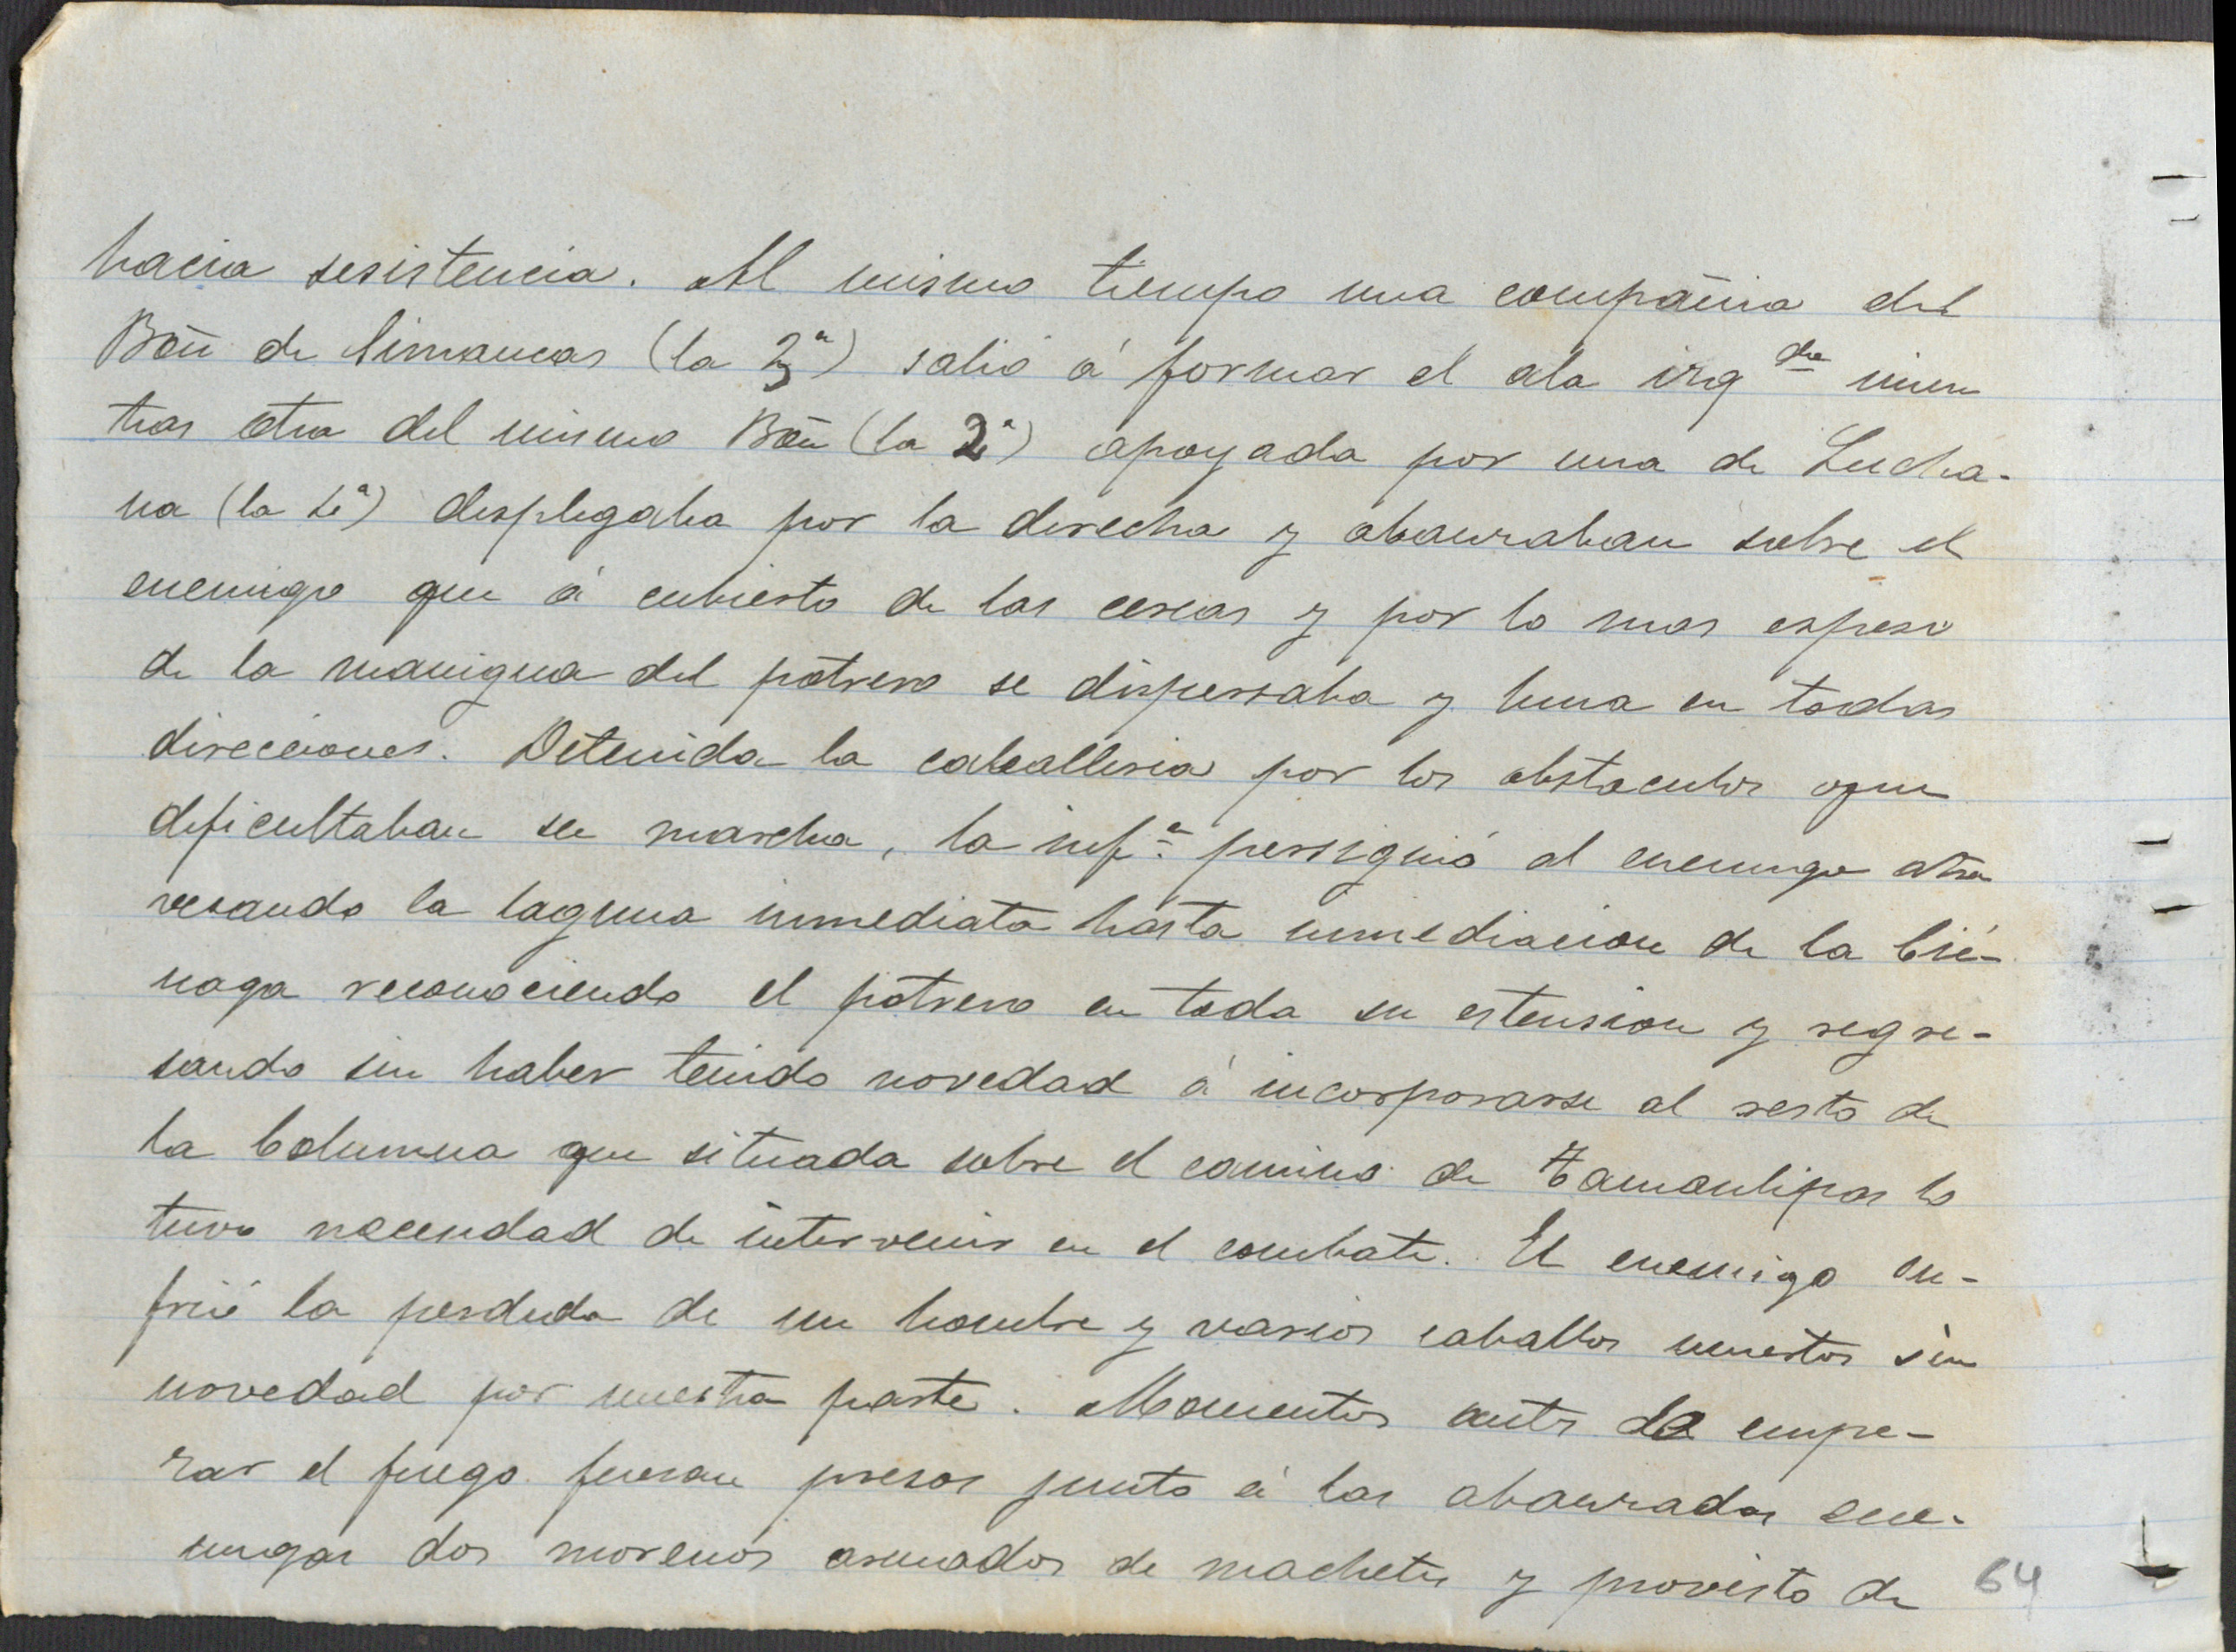 hacia resistencia. Al mismo tiempo una compañia del
Bōn de Simancas (la 3ª) salió á formar el ala izqda mien
tras otra del mismo Bōn (la 2ª) apoyada por una de Lucha-
na (la 1ª) desplegaba por la derecha y abanzaban sobre el
enemigo que á cubierto de las cercas y por lo mas espeso
de la manigua del potrero se dispersaba y huia en todas
direcciones. Detenida la caballeria por los obstaculos que
dificultaban su marcha, la infª persiguió al enemigo atra
vesando la laguna inmediata hasta inmediacion de la Cié-
naga reconociendo el potrero en toda su estension y regre-
sando sin haber tenido novedad á incorporarse al resto de
la Columna que situada sobre el camino de Tamaulipas
tuvo necesidad de intervenir en el combate. El enemigo su-
frió la perdida de un hombre y varios caballos muertos sin
novedad por nuestra parte. Momentos antes de empe-
zar el fuego fueron presos junto á las abanzadas ene-
migas dos morenos armados de machetes y provisto de
64